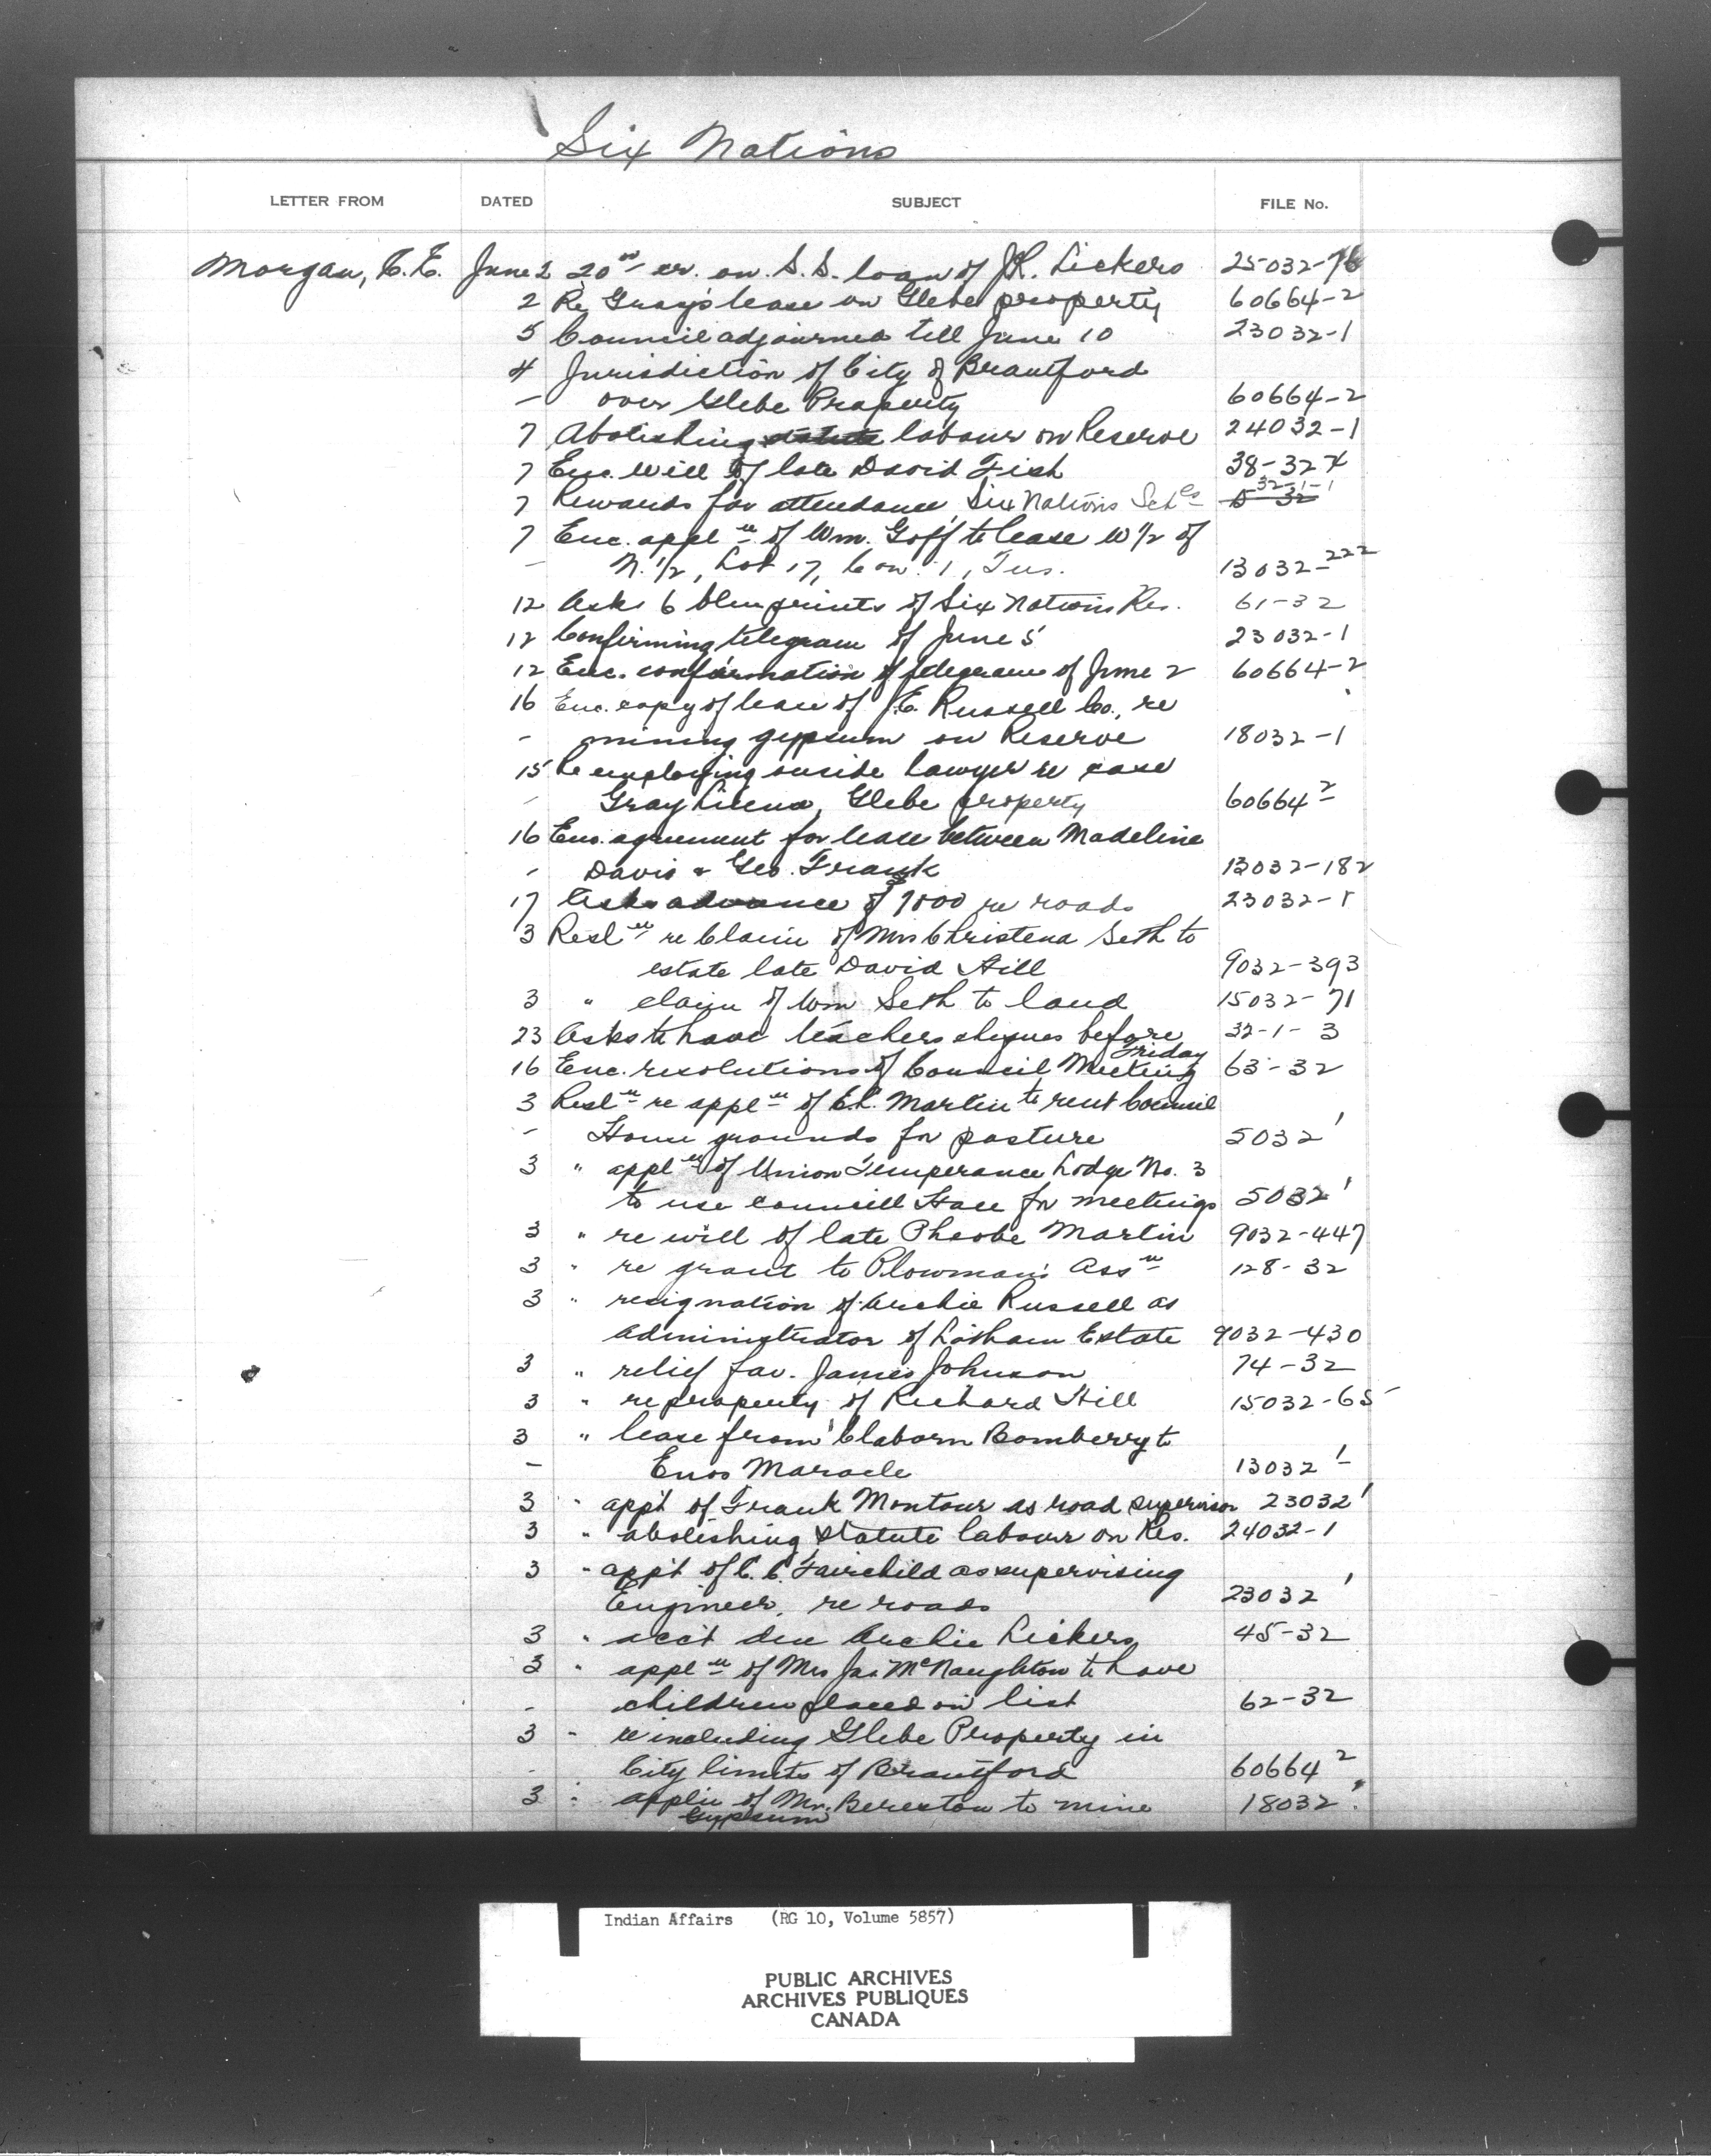 Six Nations
LETTER FROM DATED SUBJECT FILE No.
Morgan, C.E. June 2 20⁰⁰ cr. on S.S. loan of J.R. Lickers 25032-76
2 Re Gray's lease on Glebe property 60664-2
5 Council adjourned till June 10 23032-1
4 Jurisdiction of City of Brantford
- over Glebe Property 60664-2
7 Abolishing statute labour on Reserve 24032-1
7 Enc. will of late David Fish 38-32
7 Rewards for attendance, Six Nations Schls 32-1-1
7 Enc. applⁿ of Wm. Goff to lease W 1/2 of
- N. 1/2, Lot 17, Con. 1, Tus. 13032-222
12 Asks 6 blueprints of Six Nations Res. 61-32
12 Confirming telegram of June 5 23032-1
12 Enc. confirmation of telegram of June 2 60664-2
16 Enc. copy of lease of J.E. Russell Co., re
- mining gypsum on Reserve 18032-1
15 Re employing outside lawyer re case
- Gray Glebe property 60664-2
16 Enc. agreement for lease between Madeline
- Davis & Geo. Frank 13032-182
17 Asks advance of 1000 re roads 23032-1
3 Reslⁿ re Claim of Mrs Christena Seth to
estate late David Hill 9032-393
3 " claim of Wm Seth to land 15032-71
23 Asks to have teachers cheques before Friday 32-1-3
16 Enc. resolutions of Council Meeting 63-32
3 Reslⁿ re applⁿ of E.L. Martin to rent Council
- House grounds for pasture 5032-1
3 " applⁿ of Union Temperance Lodge No. 3
to use council House for meetings 5032-1
3 " re will of late Pheobe Martin 9032-447
3 " re grant to Plowman's Assⁿ 128-32
3 " resignation of Archie Russell as
administrator of Latham Estate 9032-430
3 " relief fav. James Johnson 74-32
3 " re property of Richard Hill 15032-65
3 " lease from Claborn Bomberry to
- Enos Maracle 13032-1
3 " app't of Frank Montour as road supervisor 23032-1
3 " abolishing statute labour on Res. 24032-1
3 " app't of C.C. Fairchild as supervising
Engineer, re roads 23032-1
3 " acc't due Archie Lickers 45-32
3 " applⁿ of Mrs Jas McNaughton to have
- children placed on list 62-32
3 " re including Glebe Property in
- City limits of Brantford 60664-2
3 " applⁿ of Mr. Bereston to mine 18032-1
Gypsum
Indian Affairs (RG 10, Volume 5857)
PUBLIC ARCHIVES
ARCHIVES PUBLIQUES
CANADA